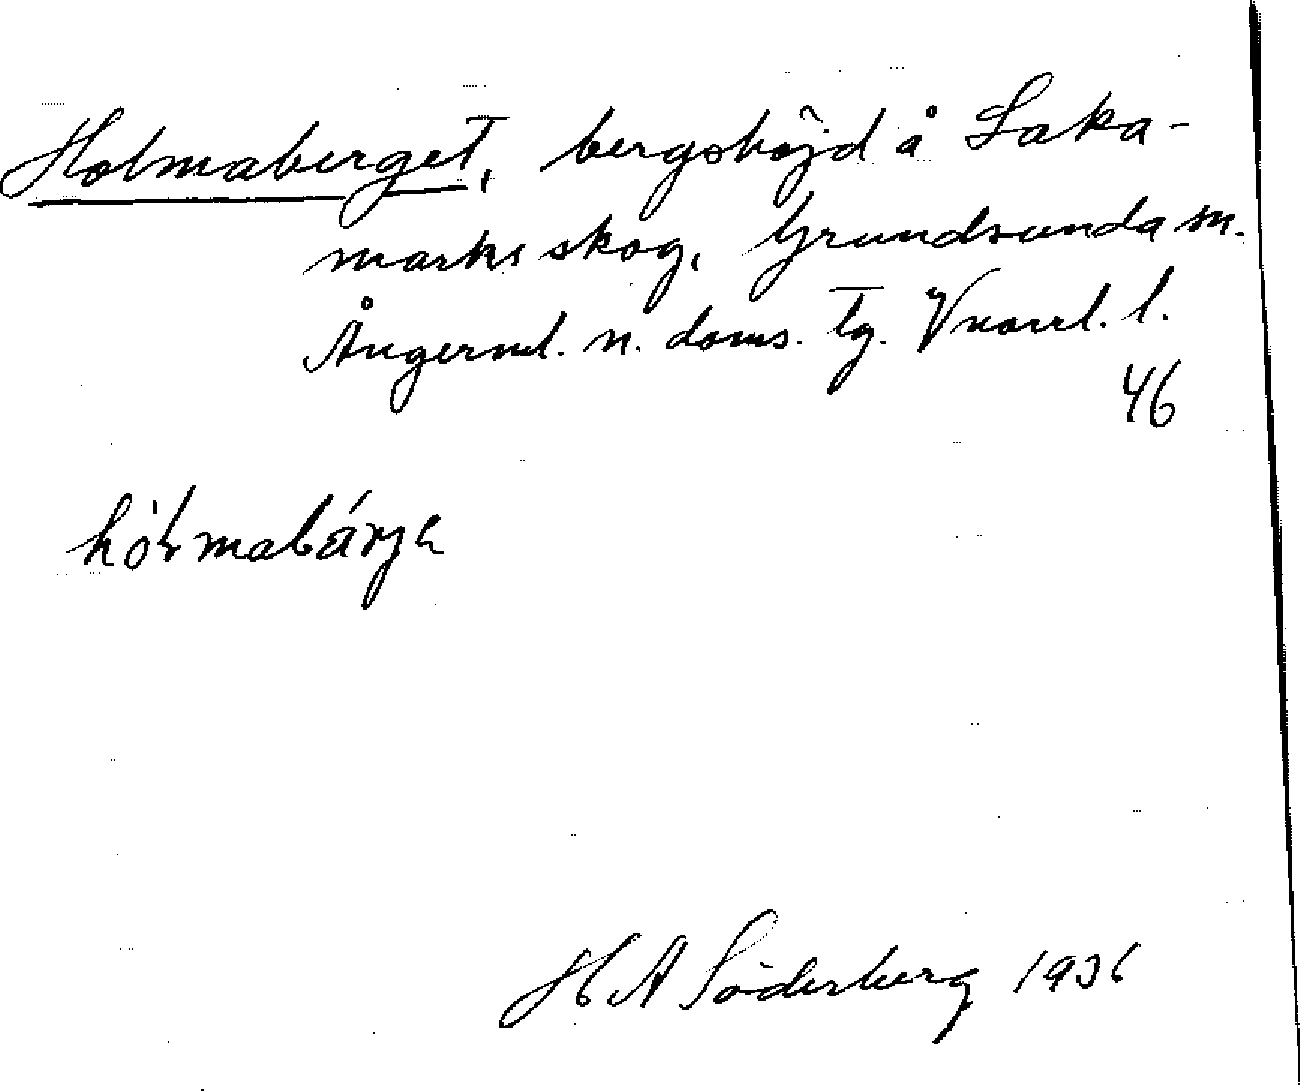 Holmaberget, bergshöjd å Saka-
marks skog, Grundsunda sn.
Ångerml. n. doms. tg. Vnorrl. l.
46
hólmabárje
H A Söderberg 1936